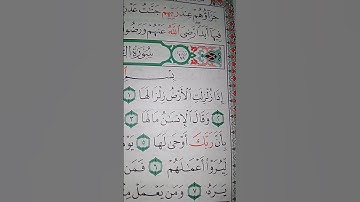 جَزَآؤُهُمْ عِندَ رَبِّهِمْ جَنَّٰتُ عَدْنٍ
فِيهَآ أَبَدًا رَّضِىَ ٱللَّهُ عَنْهُمْ وَرَضُوا۟
سُورَةُ
بِسْمِ
إِذَا زُلْزِلَتِ ٱلْأَرْضُ زِلْزَالَهَا ١
٢ وَقَالَ ٱلْإِنسَٰنُ مَا لَهَا ٣
بِأَنَّ رَبَّكَ أَوْحَىٰ لَهَا ٥
لِّيُرَوْا۟ أَعْمَٰلَهُمْ ٦ فَمَن
يَرَهُۥ ٧ وَمَن يَعْمَلْ